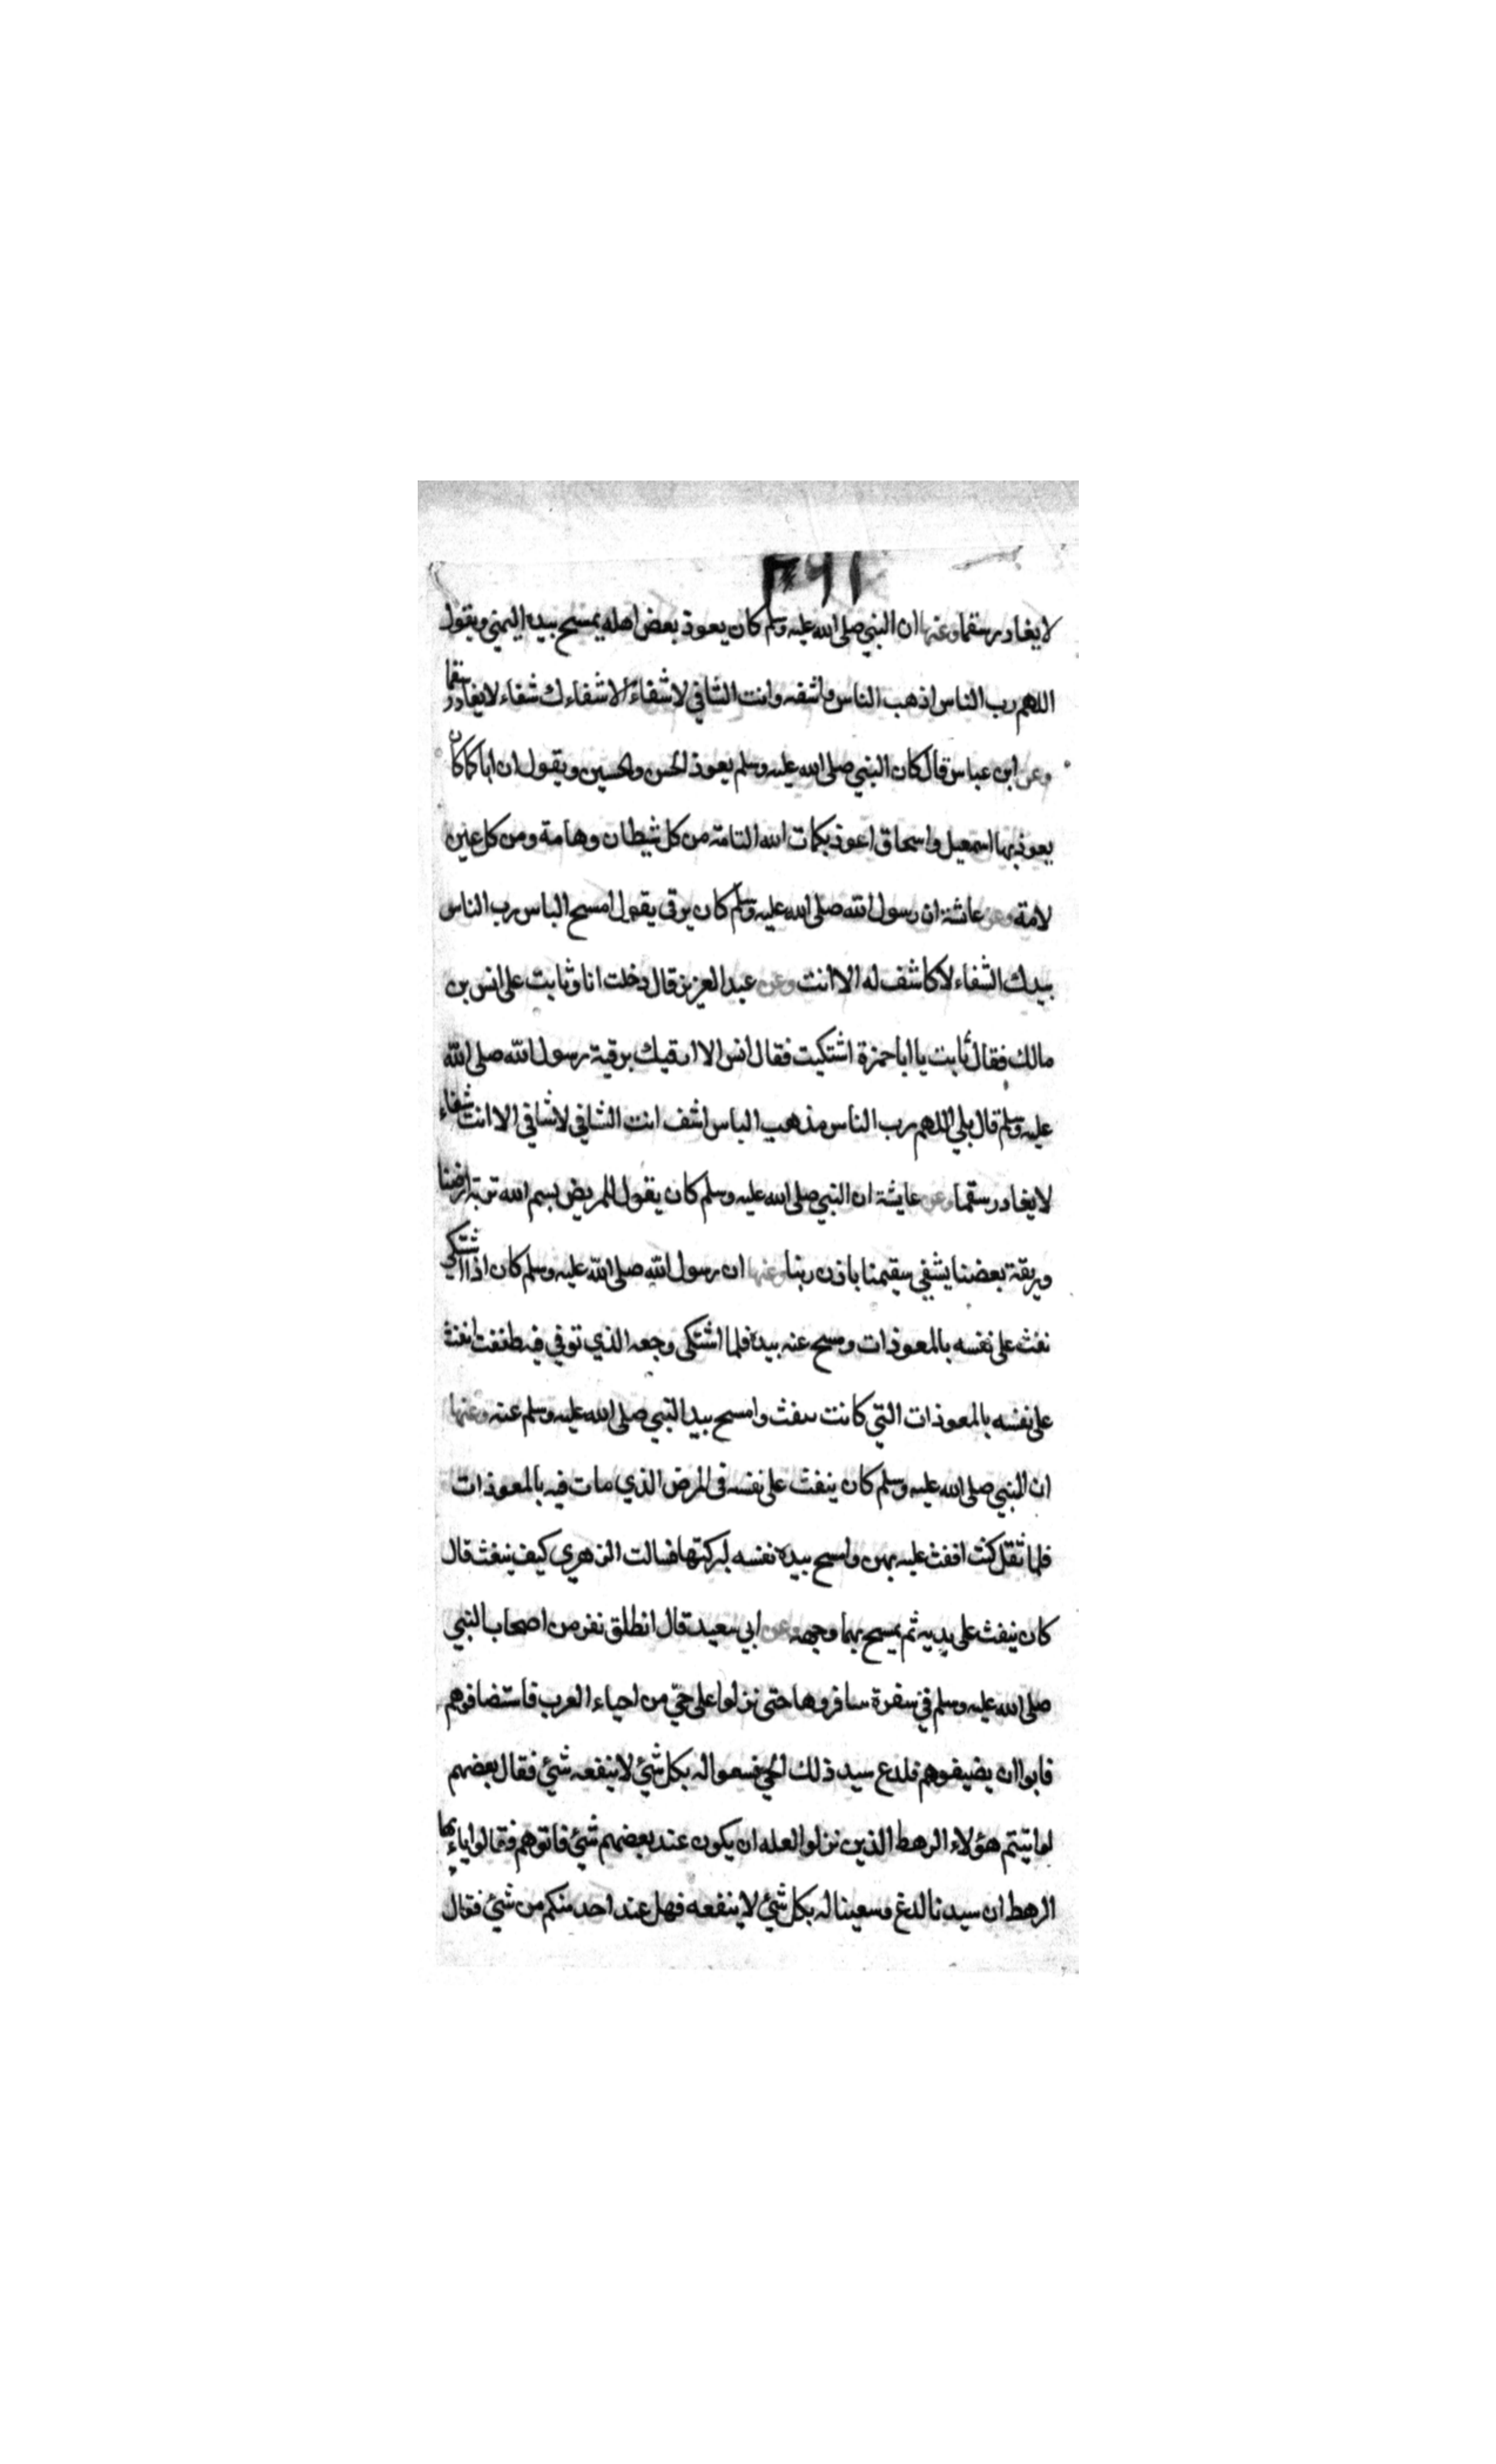 ٣٩١
لا يغادر سقما وعنها ان النبي صلى الله عليه وسلم كان يعوذ بعض اهله يمسح بيده اليمني ويقول
اللهم رب الناس اذهب الناس واشفه وانت الشافي لا شفاء الا شفاءك شفاء لا يغادر سقما
وعن ابن عباس قال كان النبي صلى الله عليه وسلم يعوذ الحسن والحسين ويقول ان اباكما كان
يعوذ بها اسمعيل واسحاق اعوذ بكلمات الله التامة من كل شيطان وهامة ومن كل عين
لامة وعن عائشة ان رسول الله صلى الله عليه وسلم كان يرقى يقول امسح الباس رب الناس
بيدك الشفاء لا كاشف له الا انت وعن عبد العزيز قال دخلت انا وثابت على انس بن
مالك فقال ثابت يا ابا حمزة اشتكيت فقال انس الا ارقيك برقية رسول الله صلى الله
عليه وسلم قال بلي اللهم رب الناس مذهب الباس اشف انت الشافي لا شافي الا انت شفاء
لا يغادر سقما وعن عايشة ان النبي صلى الله عليه وسلم كان يقول للمريض بسم الله تربة ارضنا
وريقة بعضنا يشفي سقيمنا باذن ربنا وعنها ان رسول الله صلى الله عليه وسلم كان اذا اشتكي
نفث على نفسه بالمعوذات ومسح عنه بيده فلما اشتكى وجعه الذي توفي فيه طفقت انفث
على نفسه بالمعوذات التي كانت ينفث وامسح بيد النبي صلى الله عليه وسلم عنه وعنها
ان النبي صلى الله عليه وسلم كان ينفث على نفسه في المرض الذي مات فيه بالمعوذات
فلما ثقل كنت انفث عليه بهن وامسح بيده نفسه لبركتها فسالت الزهري كيف ينفث قال
كان ينفث على يديه ثم يمسح بهما وجهه وعن ابي سعيد قال انطلق نفر من اصحاب النبي
صلى الله عليه وسلم في سفرة سافروها حتى نزلوا على حيّ من احياء العرب فاستضافوهم
فابوا ان يضيفوهم فلدغ سيد ذلك الحي فسعوا له بكل شيئ لا ينفعه شيئ فقال بعضهم
لو اتيتم هؤلاء الرهط الذين نزلوا لعله ان يكون عند بعضهم شيئ فاتوهم فقالوا يا ايها
الرهط ان سيدنا لدغ وسعينا له بكل شيئ لا ينفعه فهل عند احد منكم من شيئ فقال